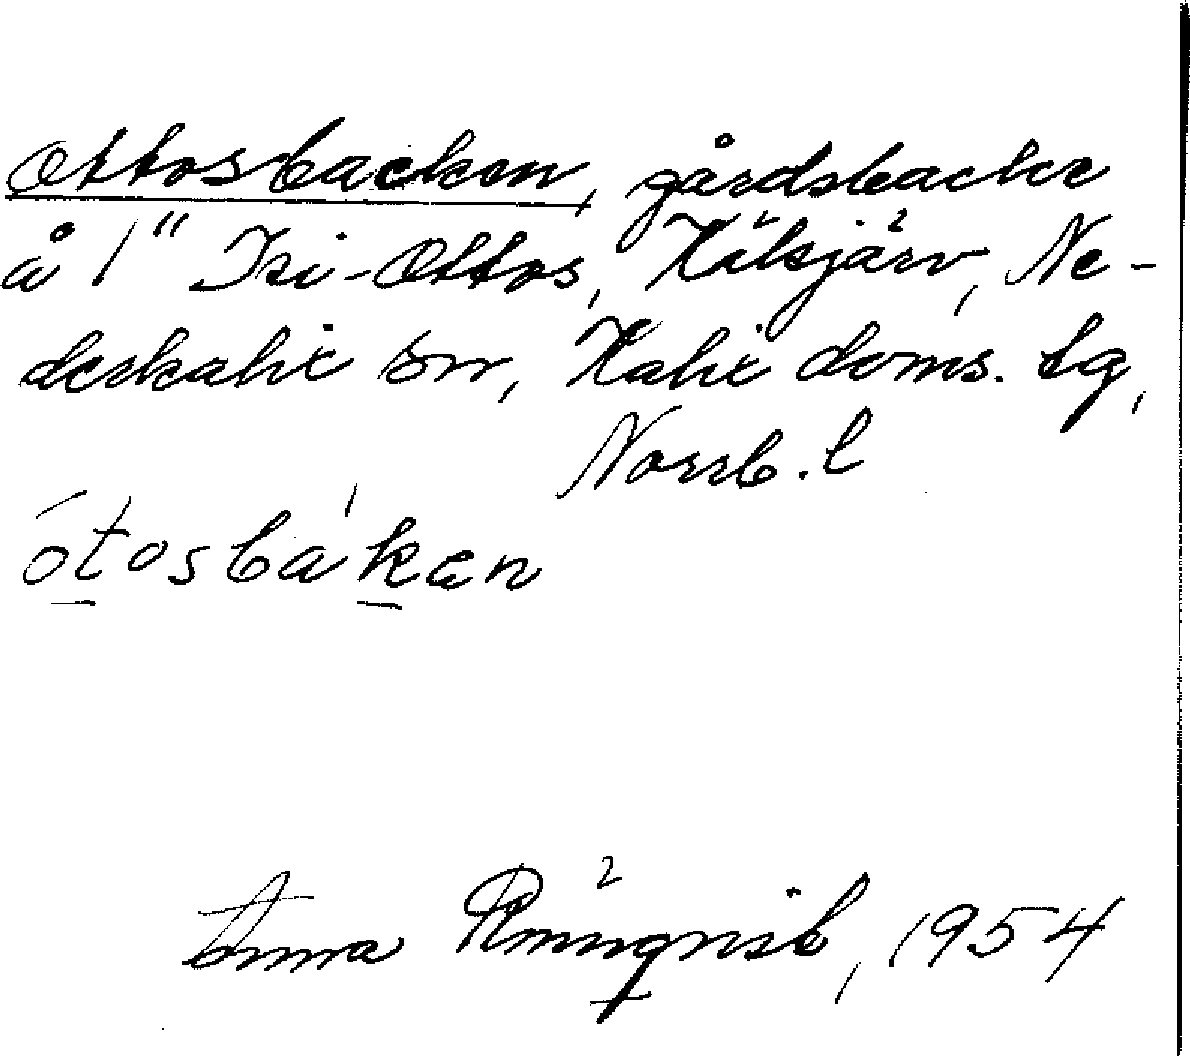 Ottosbacken, gårdsbacke
å 1" Isi-Ottos, Kälsjärv, Ne-
derkalix sn, Kalix doms. lg,
Norrb. l
ótosbákan
Anna Rönnqvist, 1954